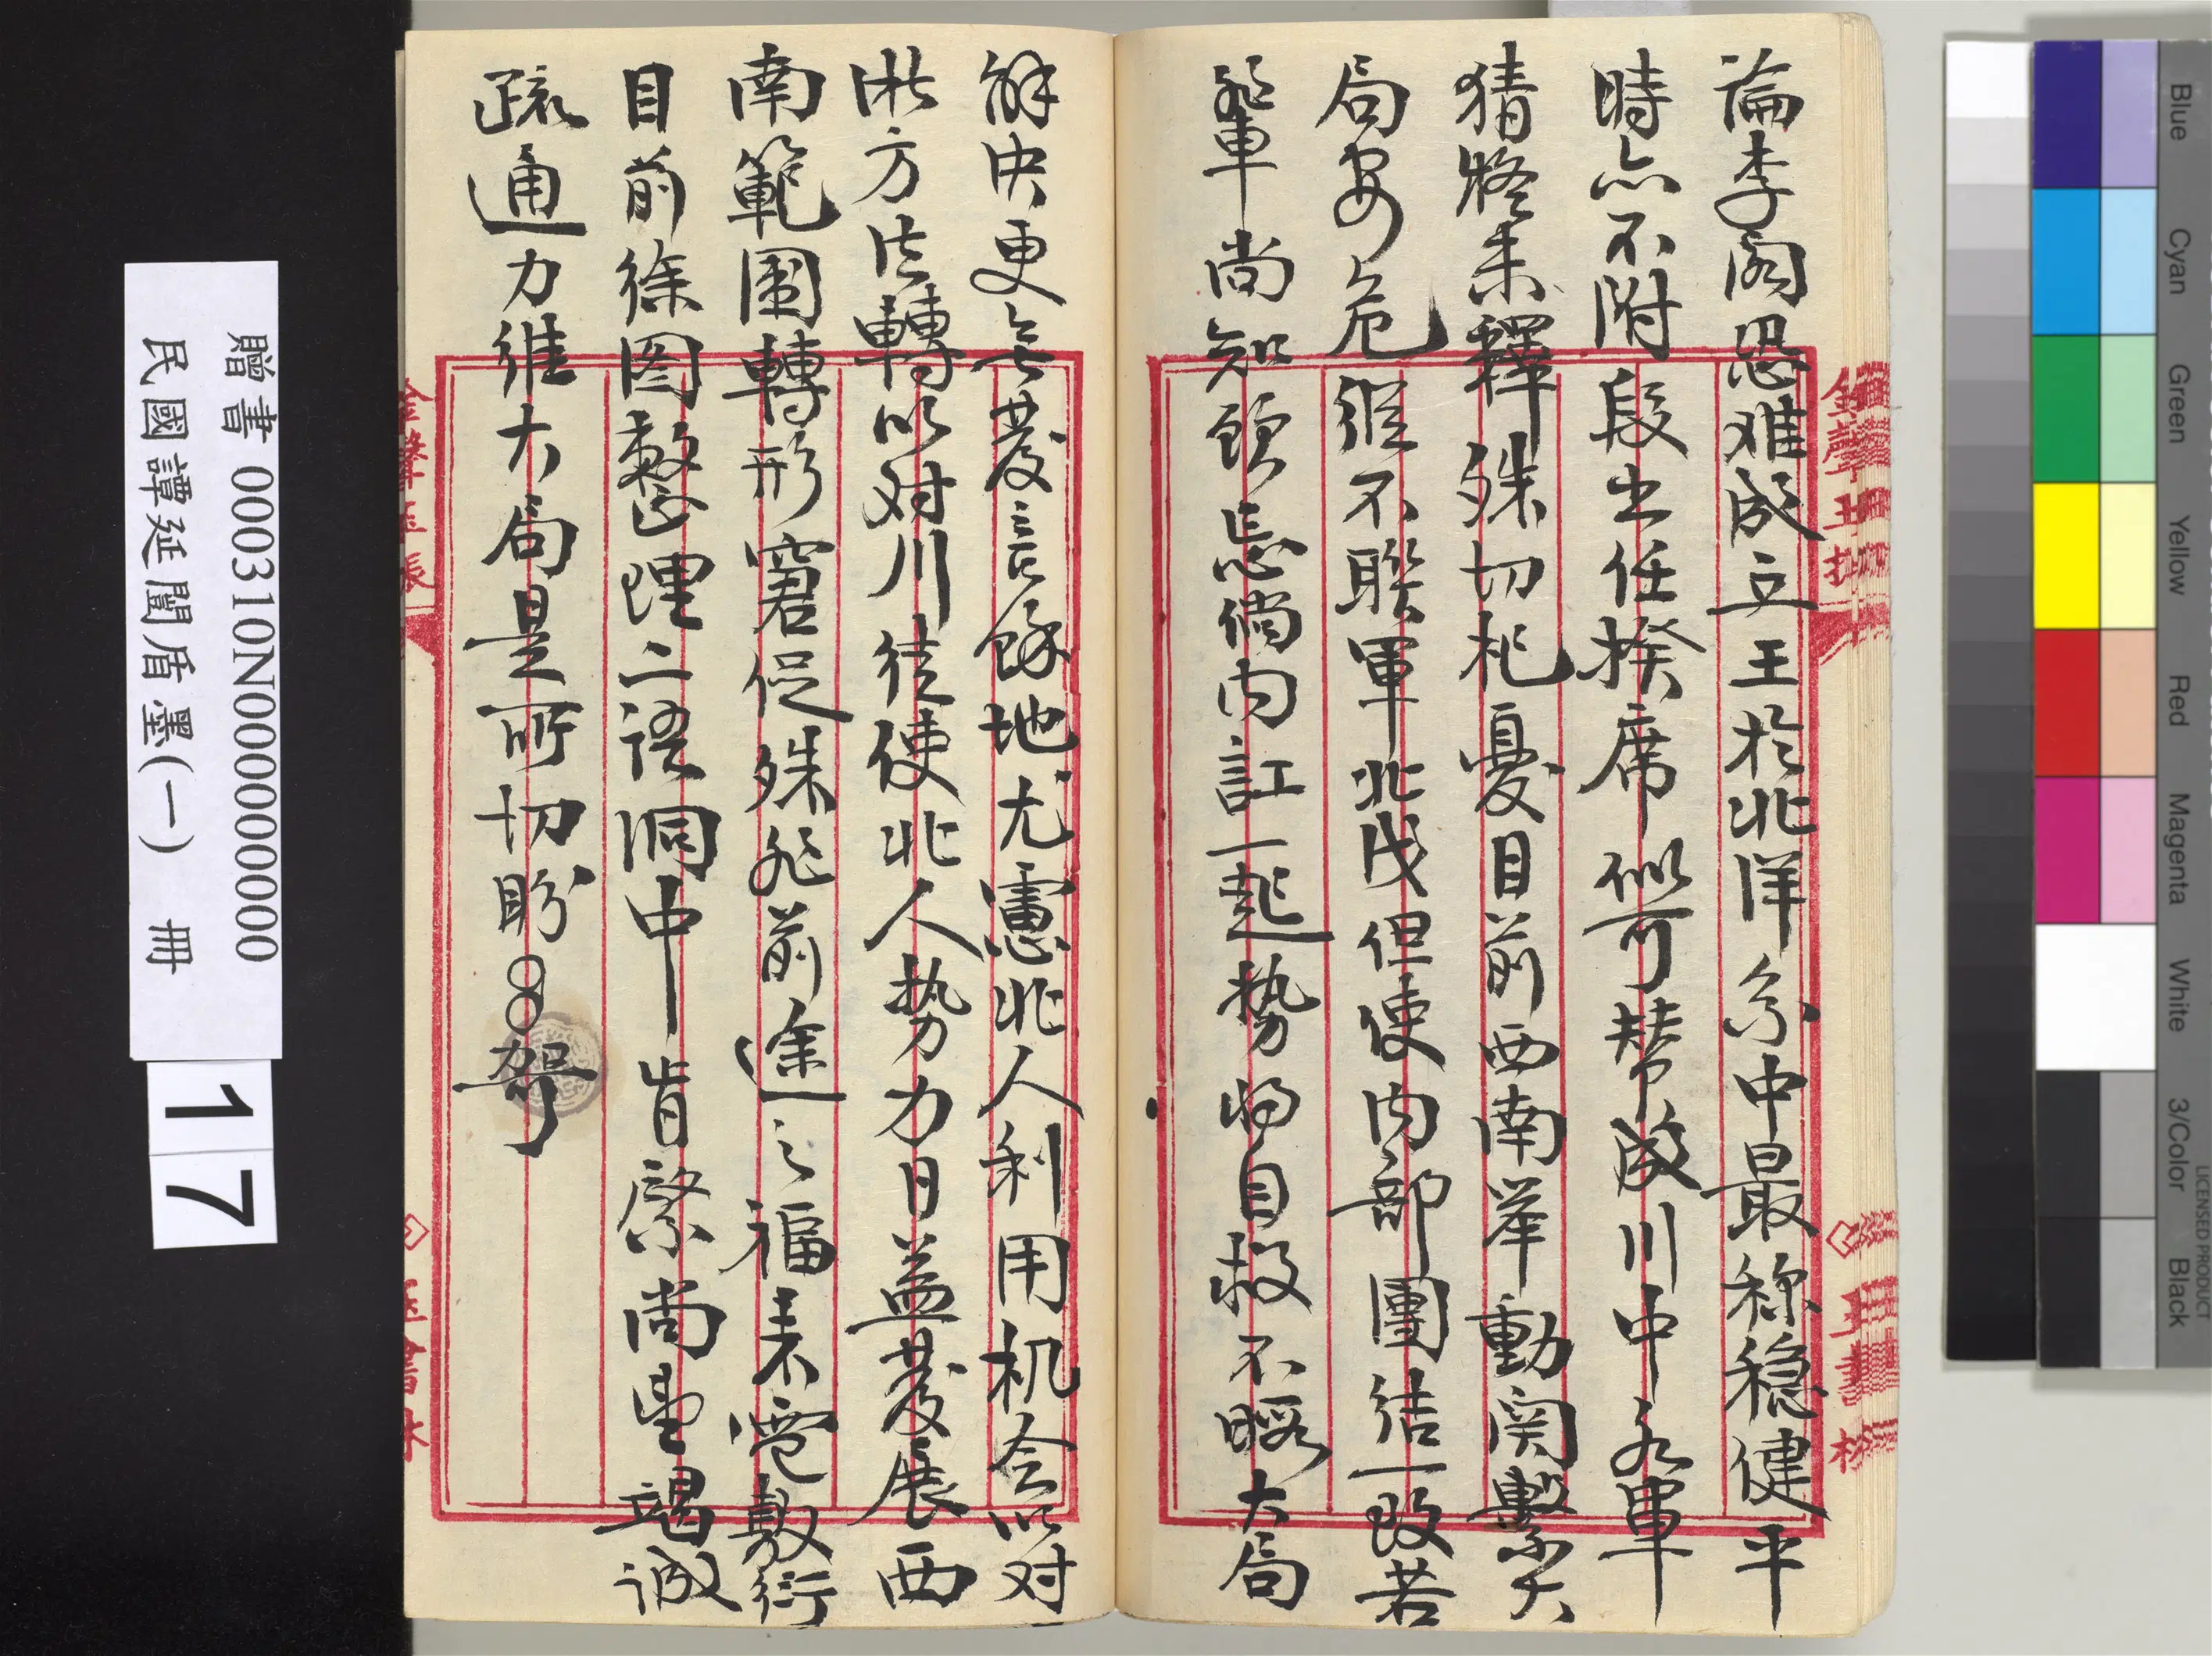 論李閣恐难成立王於北洋系中最稱穩健平
時亦不附段出任揆席似可贊成川中永軍
猜疑未釋殊切杞憂目前西南举動関繫大
局安危縱不聯軍北伐但使内部團结一致若
輩尚知顾忌倘内訌一起勢将自救不暇大局
解决更無發言餘地尤慮北人利用机会以对
淅方法轉以对川徒使北人势力日益發展西
南範圍轉形窘促殊非前途之福来電敷衍
目前徐图整理二语洞中肯綮尚望竭诚
疏通力維大局是所切盼
贈書 000310N0000000000
民國譚延闓盾墨(一) 冊
17
Blue
Cyan
Green
Yellow
Red
Magenta
White
3/Color
Black
LICENSED PRODUCT